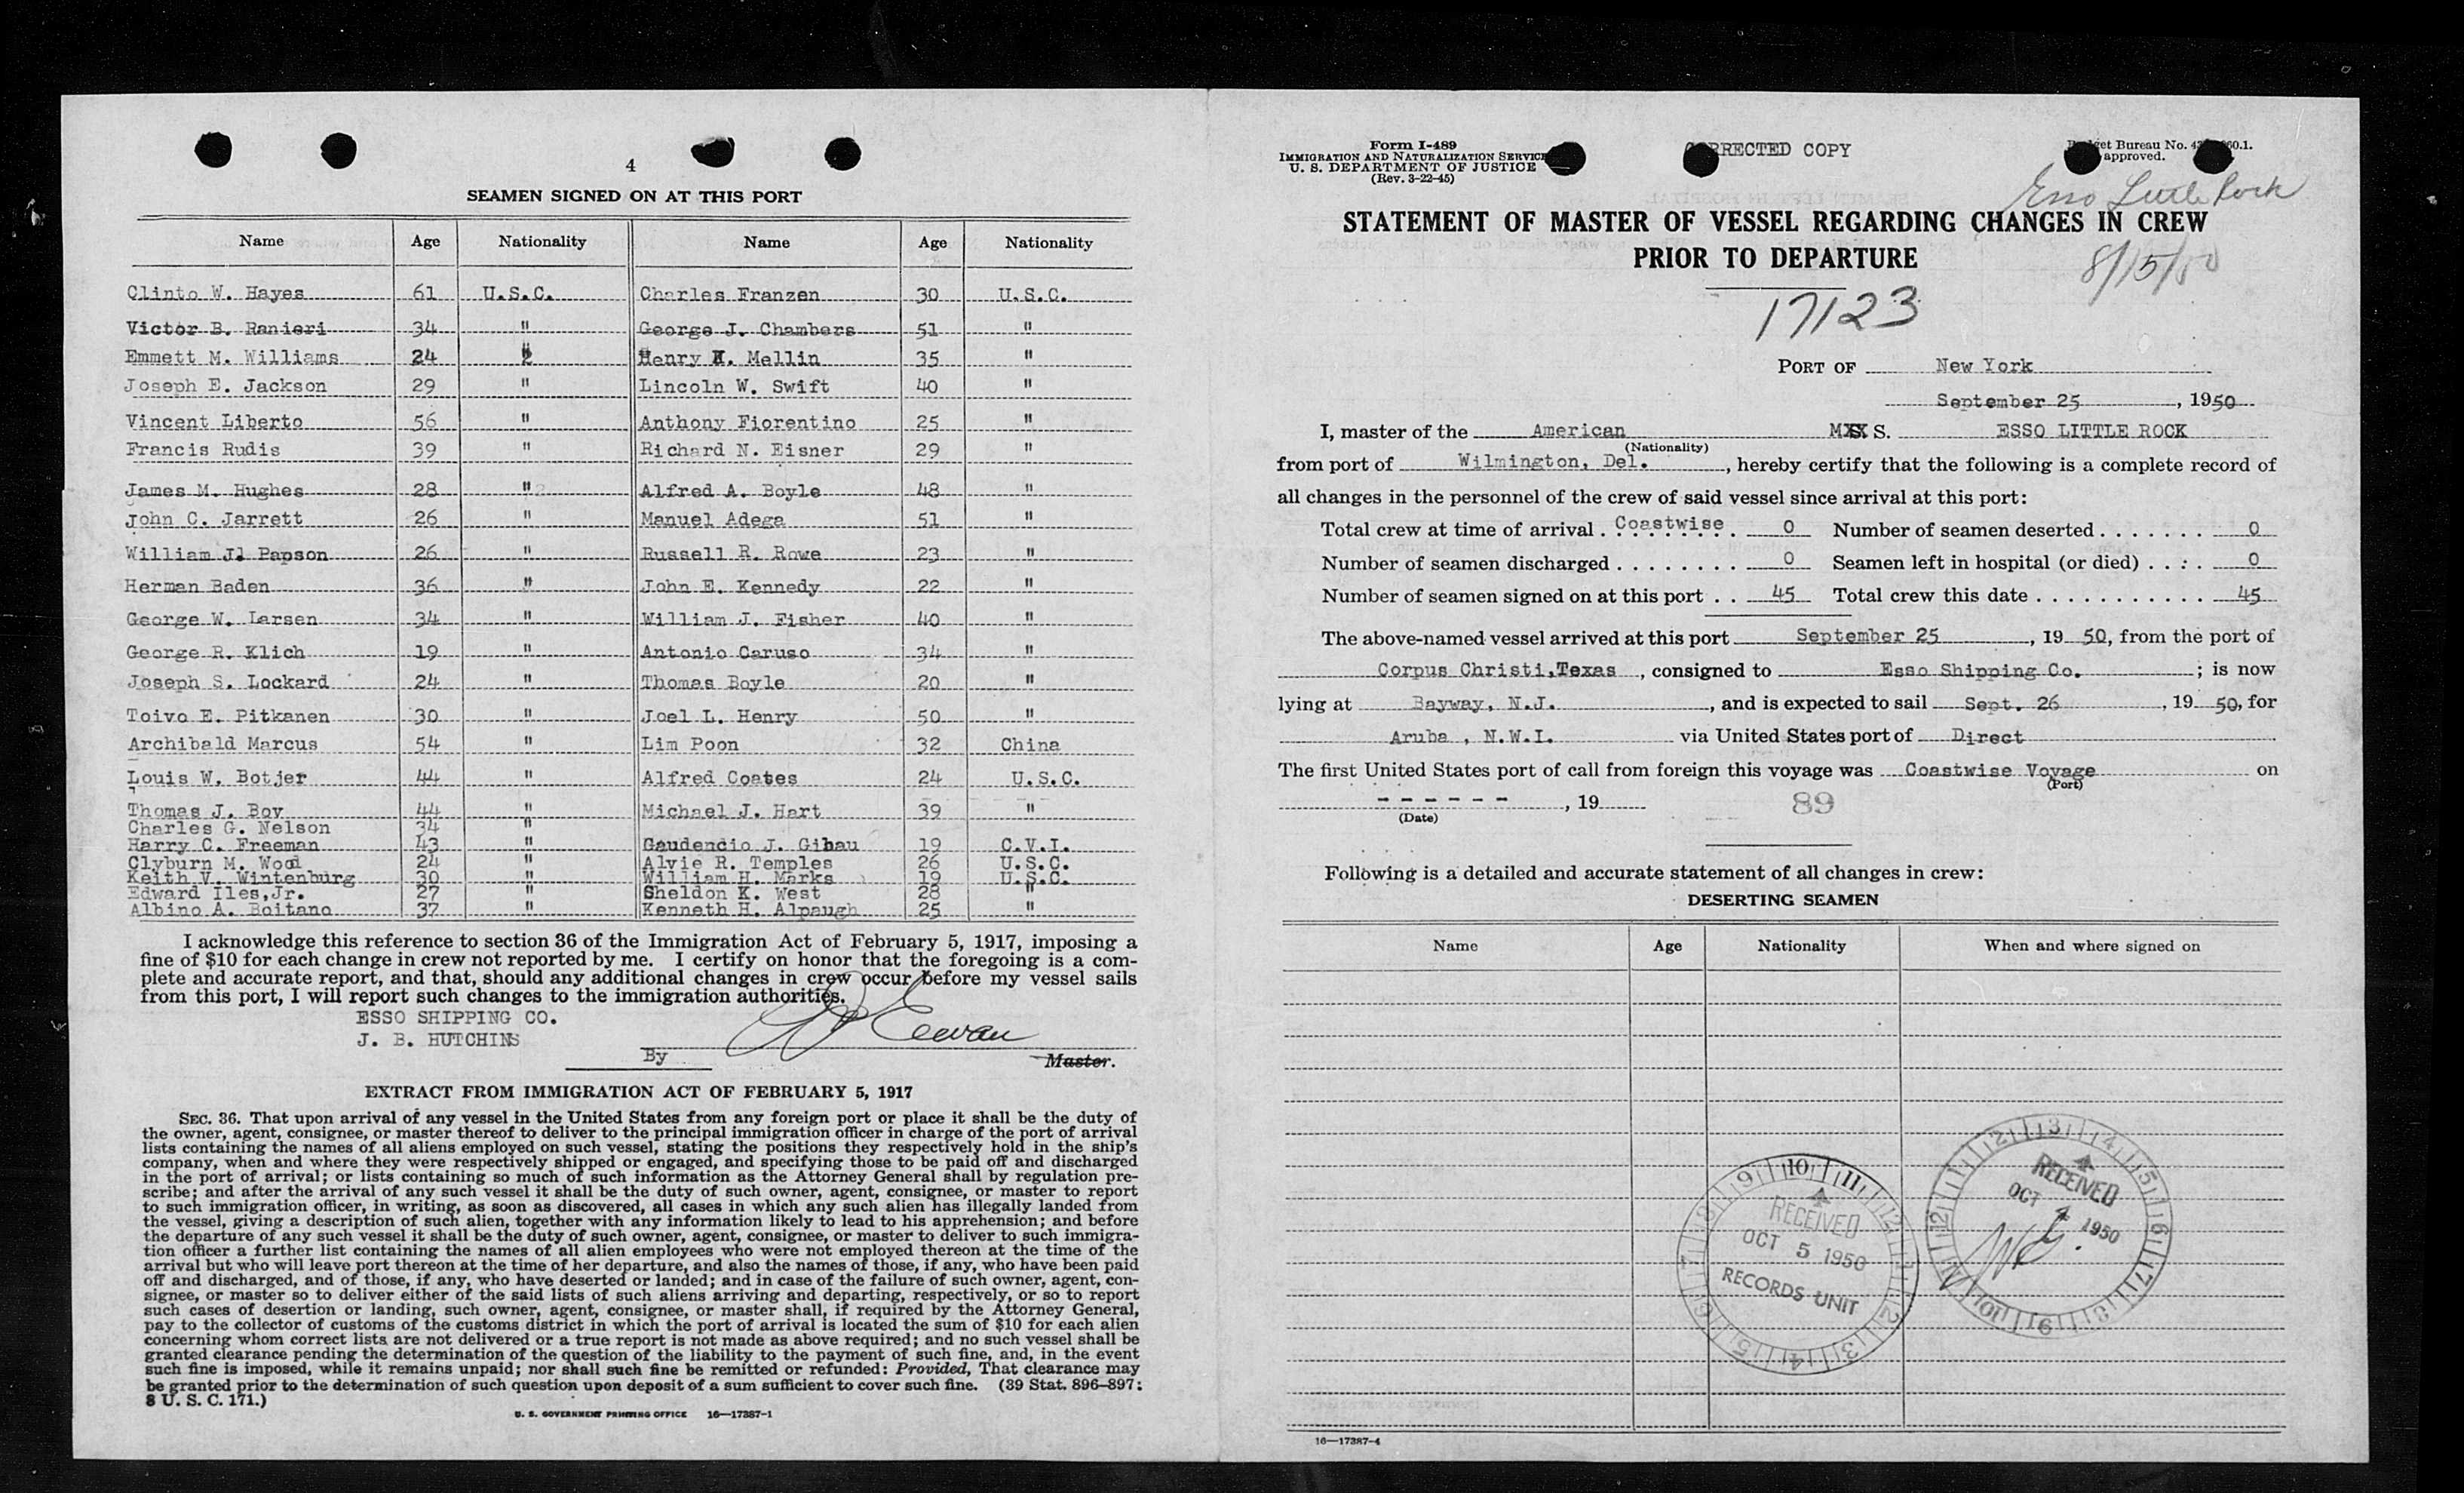 4
SEAMEN SIGNED ON AT THIS PORT
Name Age Nationality Name Age Nationality
Clinto W. Hayes 61 U.S.C. Charles Franzen 30 U.S.C.
Victor B. Ranieri 34 " George J. Chambers 51 "
Emmett M. Williams 24 " Henry K. Mellin 35 "
Joseph E. Jackson 29 " Lincoln W. Swift 40 "
Vincent Liberto 56 " Anthony Fiorentino 25 "
Francis Rudis 39 " Richard N. Eisner 29 "
James M. Hughes 28 " Alfred A. Boyle 48 "
John C. Jarrett 26 " Manuel Adega 51 "
William J. Papson 26 " Russell R. Rowe 23 "
Herman Baden 36 " John E. Kennedy 22 "
George W. Larsen 34 " William J. Fisher 40 "
George R. Klich 19 " Antonio Caruso 34 "
Joseph S. Lockard 24 " Thomas Boyle 20 "
Toivo E. Pitkanen 30 " Joel L. Henry 50 "
Archibald Marcus 54 " Lim Poon 32 China
Louis W. Botjer 44 " Alfred Coates 24 U.S.C.
Thomas J. Boy 44 " Michael J. Hart 39 "
Charles G. Nelson 34 "
Harry C. Freeman 43 " Gaudencio J. Gibau 19 C.V.I.
Clyburn M. Wood 24 " Alvie R. Temples 26 U.S.C.
Keith V. Wintenburg 30 " William H. Marks 19 U.S.C.
Edward Iles,Jr. 27 " Sheldon K. West 28 "
Albino A. Boitano 37 " Kenneth H. Alpaugh 25 "
I acknowledge this reference to section 36 of the Immigration Act of February 5, 1917, imposing a
fine of $10 for each change in crew not reported by me. I certify on honor that the foregoing is a com-
plete and accurate report, and that, should any additional changes in crew occur before my vessel sails
from this port, I will report such changes to the immigration authorities.
ESSO SHIPPING CO.
J. B. HUTCHINS
By
Master.
EXTRACT FROM IMMIGRATION ACT OF FEBRUARY 5, 1917
SEC. 36. That upon arrival of any vessel in the United States from any foreign port or place it shall be the duty of
the owner, agent, consignee, or master thereof to deliver to the principal immigration officer in charge of the port of arrival
lists containing the names of all aliens employed on such vessel, stating the positions they respectively hold in the ship's
company, when and where they were respectively shipped or engaged, and specifying those to be paid off and discharged
in the port of arrival; or lists containing so much of such information as the Attorney General shall by regulation pre-
scribe; and after the arrival of any such vessel it shall be the duty of such owner, agent, consignee, or master to report
to such immigration officer, in writing, as soon as discovered, all cases in which any such alien has illegally landed from
the vessel, giving a description of such alien, together with any information likely to lead to his apprehension; and before
the departure of any such vessel it shall be the duty of such owner, agent, consignee, or master to deliver to such immigra-
tion officer a further list containing the names of all alien employees who were not employed thereon at the time of the
arrival but who will leave port thereon at the time of her departure, and also the names of those, if any, who have been paid
off and discharged, and of those, if any, who have deserted or landed; and in case of the failure of such owner, agent, con-
signee, or master so to deliver either of the said lists of such aliens arriving and departing, respectively, or so to report
such cases of desertion or landing, such owner, agent, consignee, or master shall, if required by the Attorney General,
pay to the collector of customs of the customs district in which the port of arrival is located the sum of $10 for each alien
concerning whom correct lists are not delivered or a true report is not made as above required; and no such vessel shall be
granted clearance pending the determination of the question of the liability to the payment of such fine, and, in the event
such fine is imposed, while it remains unpaid; nor shall such fine be remitted or refunded: Provided, That clearance may
be granted prior to the determination of such question upon deposit of a sum sufficient to cover such fine. (39 Stat. 896–897;
8 U. S. C. 171.)
U. S. GOVERNMENT PRINTING OFFICE 16—17387-1
Form I-489
IMMIGRATION AND NATURALIZATION SERVICE
U. S. DEPARTMENT OF JUSTICE
(Rev. 3-22-45)
CORRECTED COPY
Budget Bureau No.
approved.
Esso Little Rock
STATEMENT OF MASTER OF VESSEL REGARDING CHANGES IN CREW
PRIOR TO DEPARTURE
8/15/50
17123
PORT OF New York
September 25, 1950
I, master of the American S. ESSO LITTLE ROCK
(Nationality)
from port of Wilmington, Del., hereby certify that the following is a complete record of
all changes in the personnel of the crew of said vessel since arrival at this port:
Total crew at time of arrival Coastwise 0 Number of seamen deserted 0
Number of seamen discharged 0 Seamen left in hospital (or died) 0
Number of seamen signed on at this port 45 Total crew this date 45
The above-named vessel arrived at this port September 25, 1950, from the port of
Corpus Christi,Texas, consigned to Esso Shipping Co.; is now
lying at Bayway, N.J., and is expected to sail Sept. 26, 1950, for
Aruba , N.W.I. via United States port of Direct
The first United States port of call from foreign this voyage was Coastwise Voyage on
(Port)
- - - - - -, 19
(Date)
89
Following is a detailed and accurate statement of all changes in crew:
DESERTING SEAMEN
Name Age Nationality When and where signed on
RECEIVED
OCT 5 1950
RECORDS UNIT
RECEIVED
OCT 1950
16—17387-4